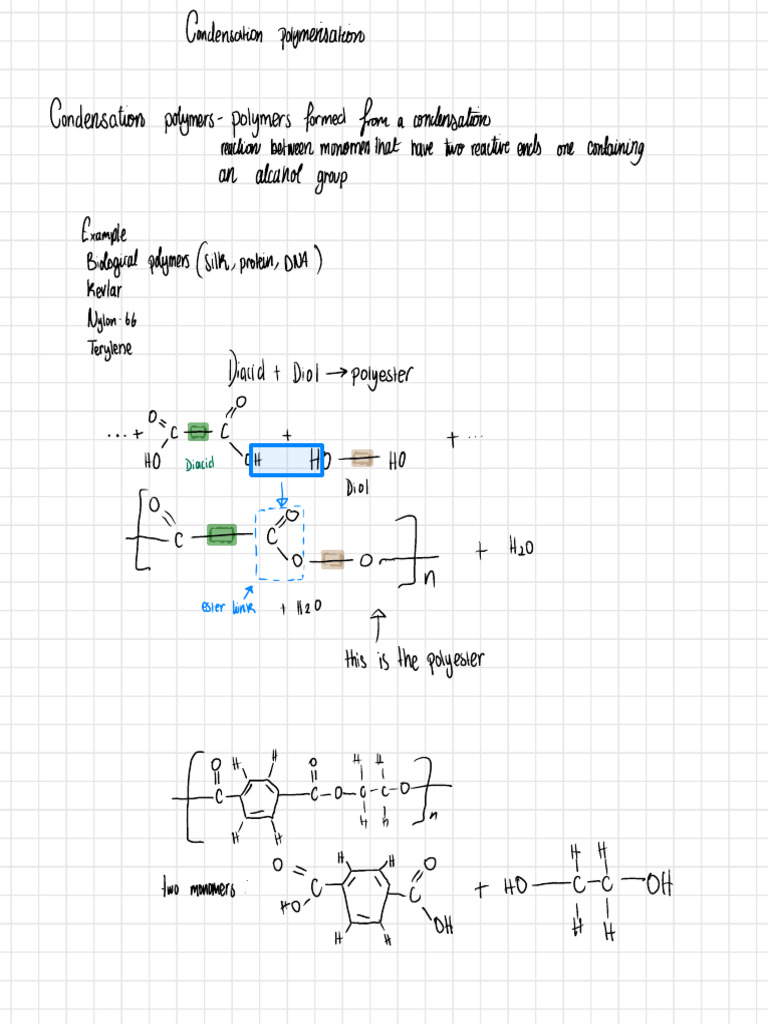 Condensation polymerisation
Condensation polymers - polymers formed from a condensation
reaction between monomers that have two reactive ends one containing
an alcohol group
Example
Biological polymers (silk, protein, DNA)
Kevlar
Nylon-66
Terylene
Diacid + Diol → polyester
O O
...+ C C + + ...
HO Diacid OH HO HO
Diol
O O
C C
O O n + H2O
ester link + H2O
this is the polyester
O H H O H H
C C-O-C-C-O
H H H H n
O H H O H H
two monomers: C C + HO C-C OH
HO OH
H H H H